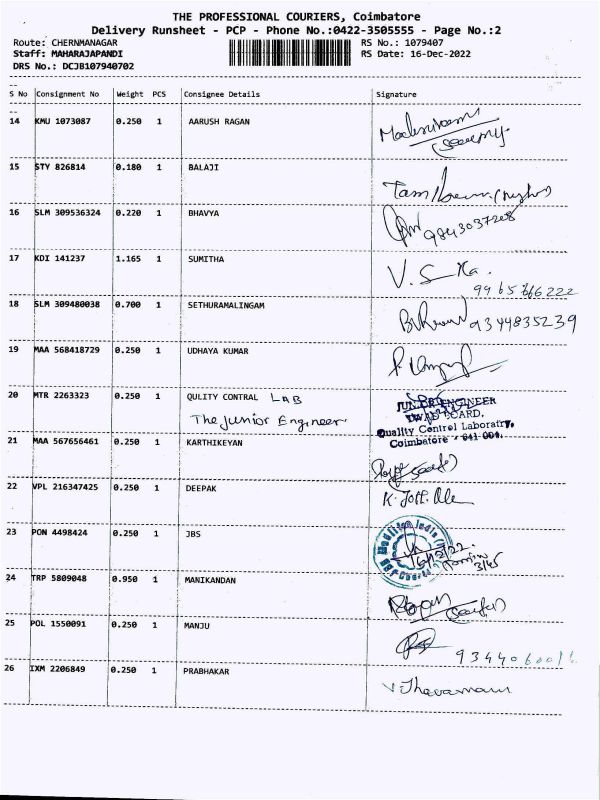 THE PROFESSIONAL COURIERS, Coimbatore
Delivery Runsheet - PCP - Phone No.:0422-3505555 - Page No.:2
Route: CHERNMANAGAR RS No.: 1079407
Staff: MAHARAJAPANDI RS Date: 16-Dec-2022
DRS No.: DCJB107940702
S No Consignment No Weight PCS Consignee Details Signature
14 KMU 1073087 0.250 1 AARUSH RAGAN
15 STY 826814 0.180 1 BALAJI
16 SLM 309536324 0.220 1 BHAVYA
9843037208
17 KDI 141237 1.165 1 SUMITHA
18 SLM 309480038 0.700 1 SETHURAMALINGAM
9344835239
19 MAA 568418729 0.250 1 UDHAYA KUMAR
20 MTR 2263323 0.250 1 QULITY CONTRAL LAB
The Junior Engineer
JUNIOR ENGINEER
TWAD BOARD,
Quality Control Laboratory,
Coimbatore - 641 001.
21 MAA 567656461 0.250 1 KARTHIKEYAN
22 VPL 216347425 0.250 1 DEEPAK
23 PON 4498424 0.250 1 JBS
24 TRP 5809048 0.950 1 MANIKANDAN
25 POL 1550091 0.250 1 MANJU
26 IXM 2206849 0.250 1 PRABHAKAR